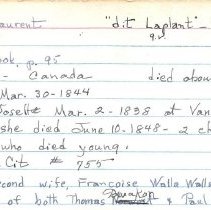 Laurent. "dit Laplant" -
q.v.
ook, p. 95
- Canada died abou
Mar. 30-1844
Josette Mar. 2-1838 at Van
she died June 10-1848-2 ch
who died young.
Cit # 755
econd wife, Françoise Walla Walla
of both Thomas & Paul